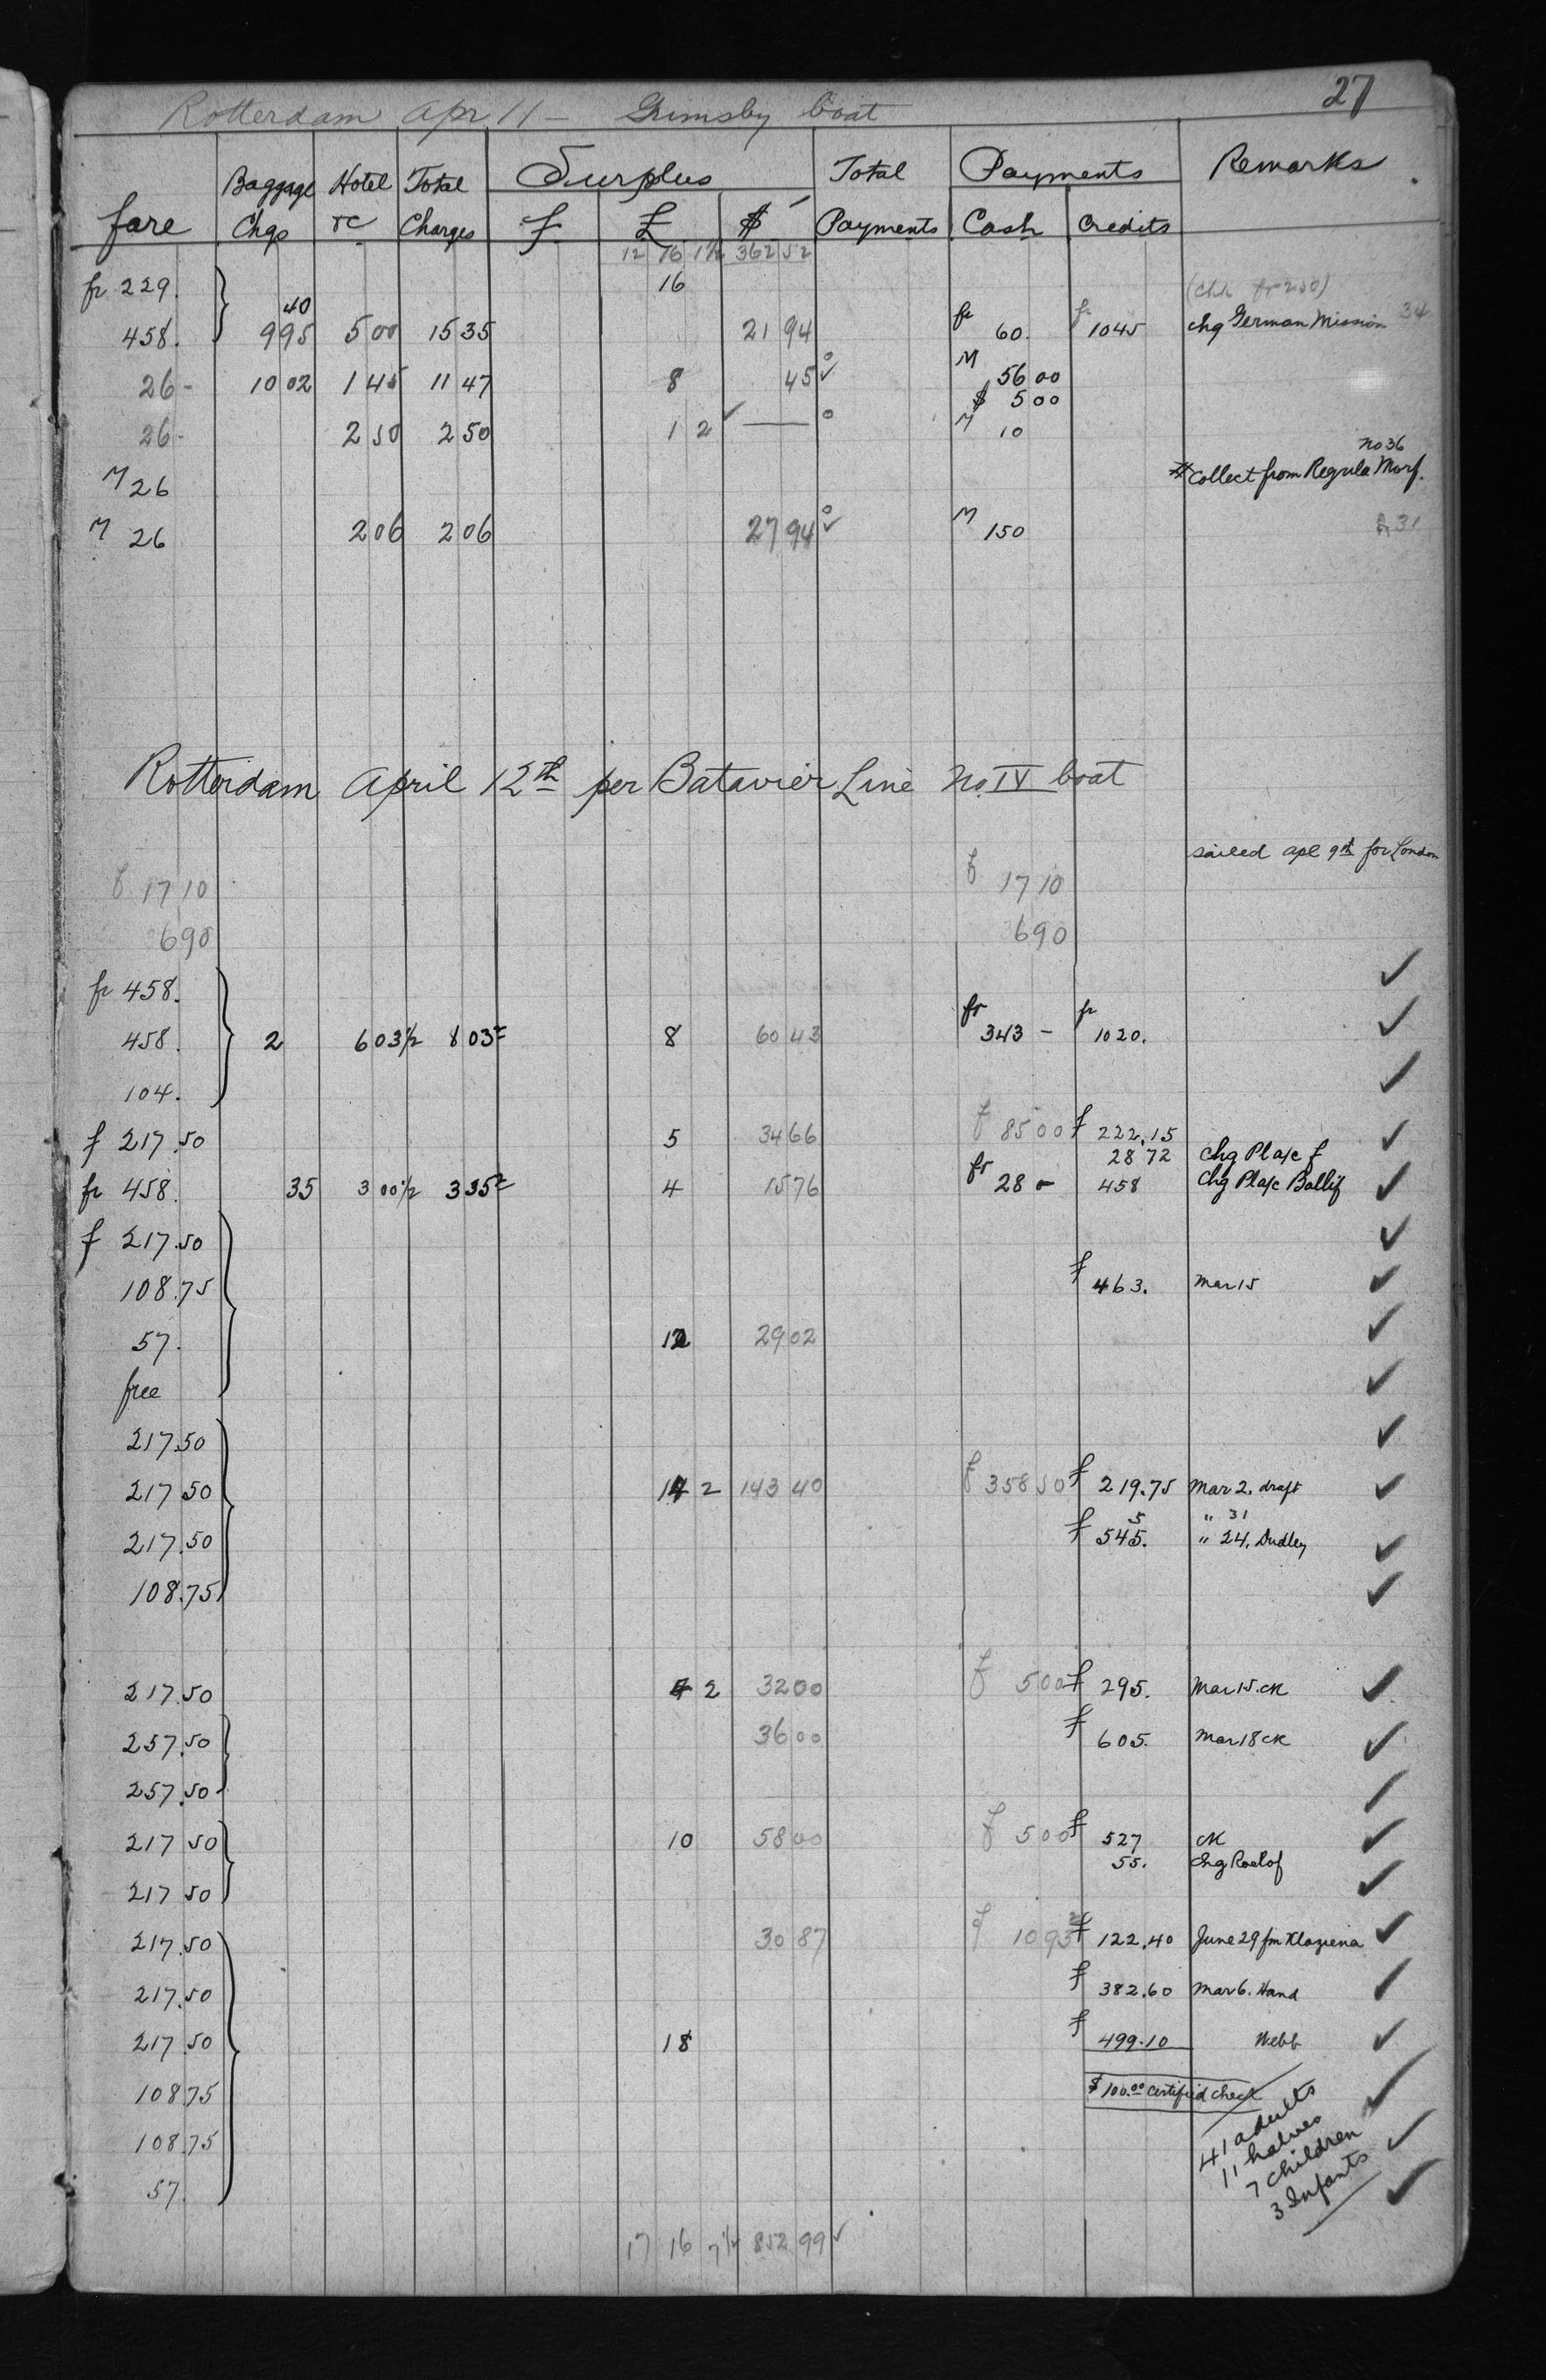 27
Rotterdam Apr 11 - Grimsby boat
fare Baggage Chgs Hotel rc Total Charges Surplus f £ $ Total Payments Payments Cash Credits Remarks
12 16 1½ 362 52
fr 229. 16 (chk fr 250)
40
458. 995 500 1535 21 94 fr 60. fr 1045 chg German Mission 34
26 - 10 02 145 11 47 8 45 ✓ M 56 00
$ 5 00
26 - 2 50 2 50 1 2 ✓ — M 10
no 36
M 26 # Collect from Regula Morf.
M 26 206 206 27 94 ✓ M 150 31
Rotterdam April 12th per Batavier Line No IV boat
sailed apl 9th for London
f 17 10 f 17 10
690 690
fr 458. ✓
458. 2 603½ 803½ 8 60 43 fr 343 - fr 1020. ✓
104. ✓
f 217.50 5 34 66 f 85 00 f 222.15 ✓
28 72 Chg Pl a/c f
fr 458. 35 300½ 335½ 4 15 76 fr 28 - 458 Chg Pl a/c Ballif ✓
f 217.50 ✓
108.75 f 463. Mar 15 ✓
57. 12 29 02 ✓
free ✓
217.50 ✓
217.50 14 2 143 40 f 358 50 f 219.75 Mar 2. draft ✓
5 " 31
217.50 f 545. " 24. Dudley ✓
108.75 ✓
217.50 2 32 00 f 500 f 295. Mar 15. ck ✓
257.50 36 00 f 605. Mar 18 ck ✓
257.50 ✓
217 50 10 58 00 f 500 f 527 ck ✓
55. Chg Roelof
217 50 ✓
217.50 30 87 f 10 93 f 122.40 June 29 fm Klaziena ✓
217.50 f 382.60 Mar 6. Hand ✓
217.50 18 f 499.10 Webb ✓
108 75 $100.00 Certified Check ✓
41 adults
11 halves
108 75 7 children ✓
57. 3 Infants ✓
17 16 7½ 852 99 ✓